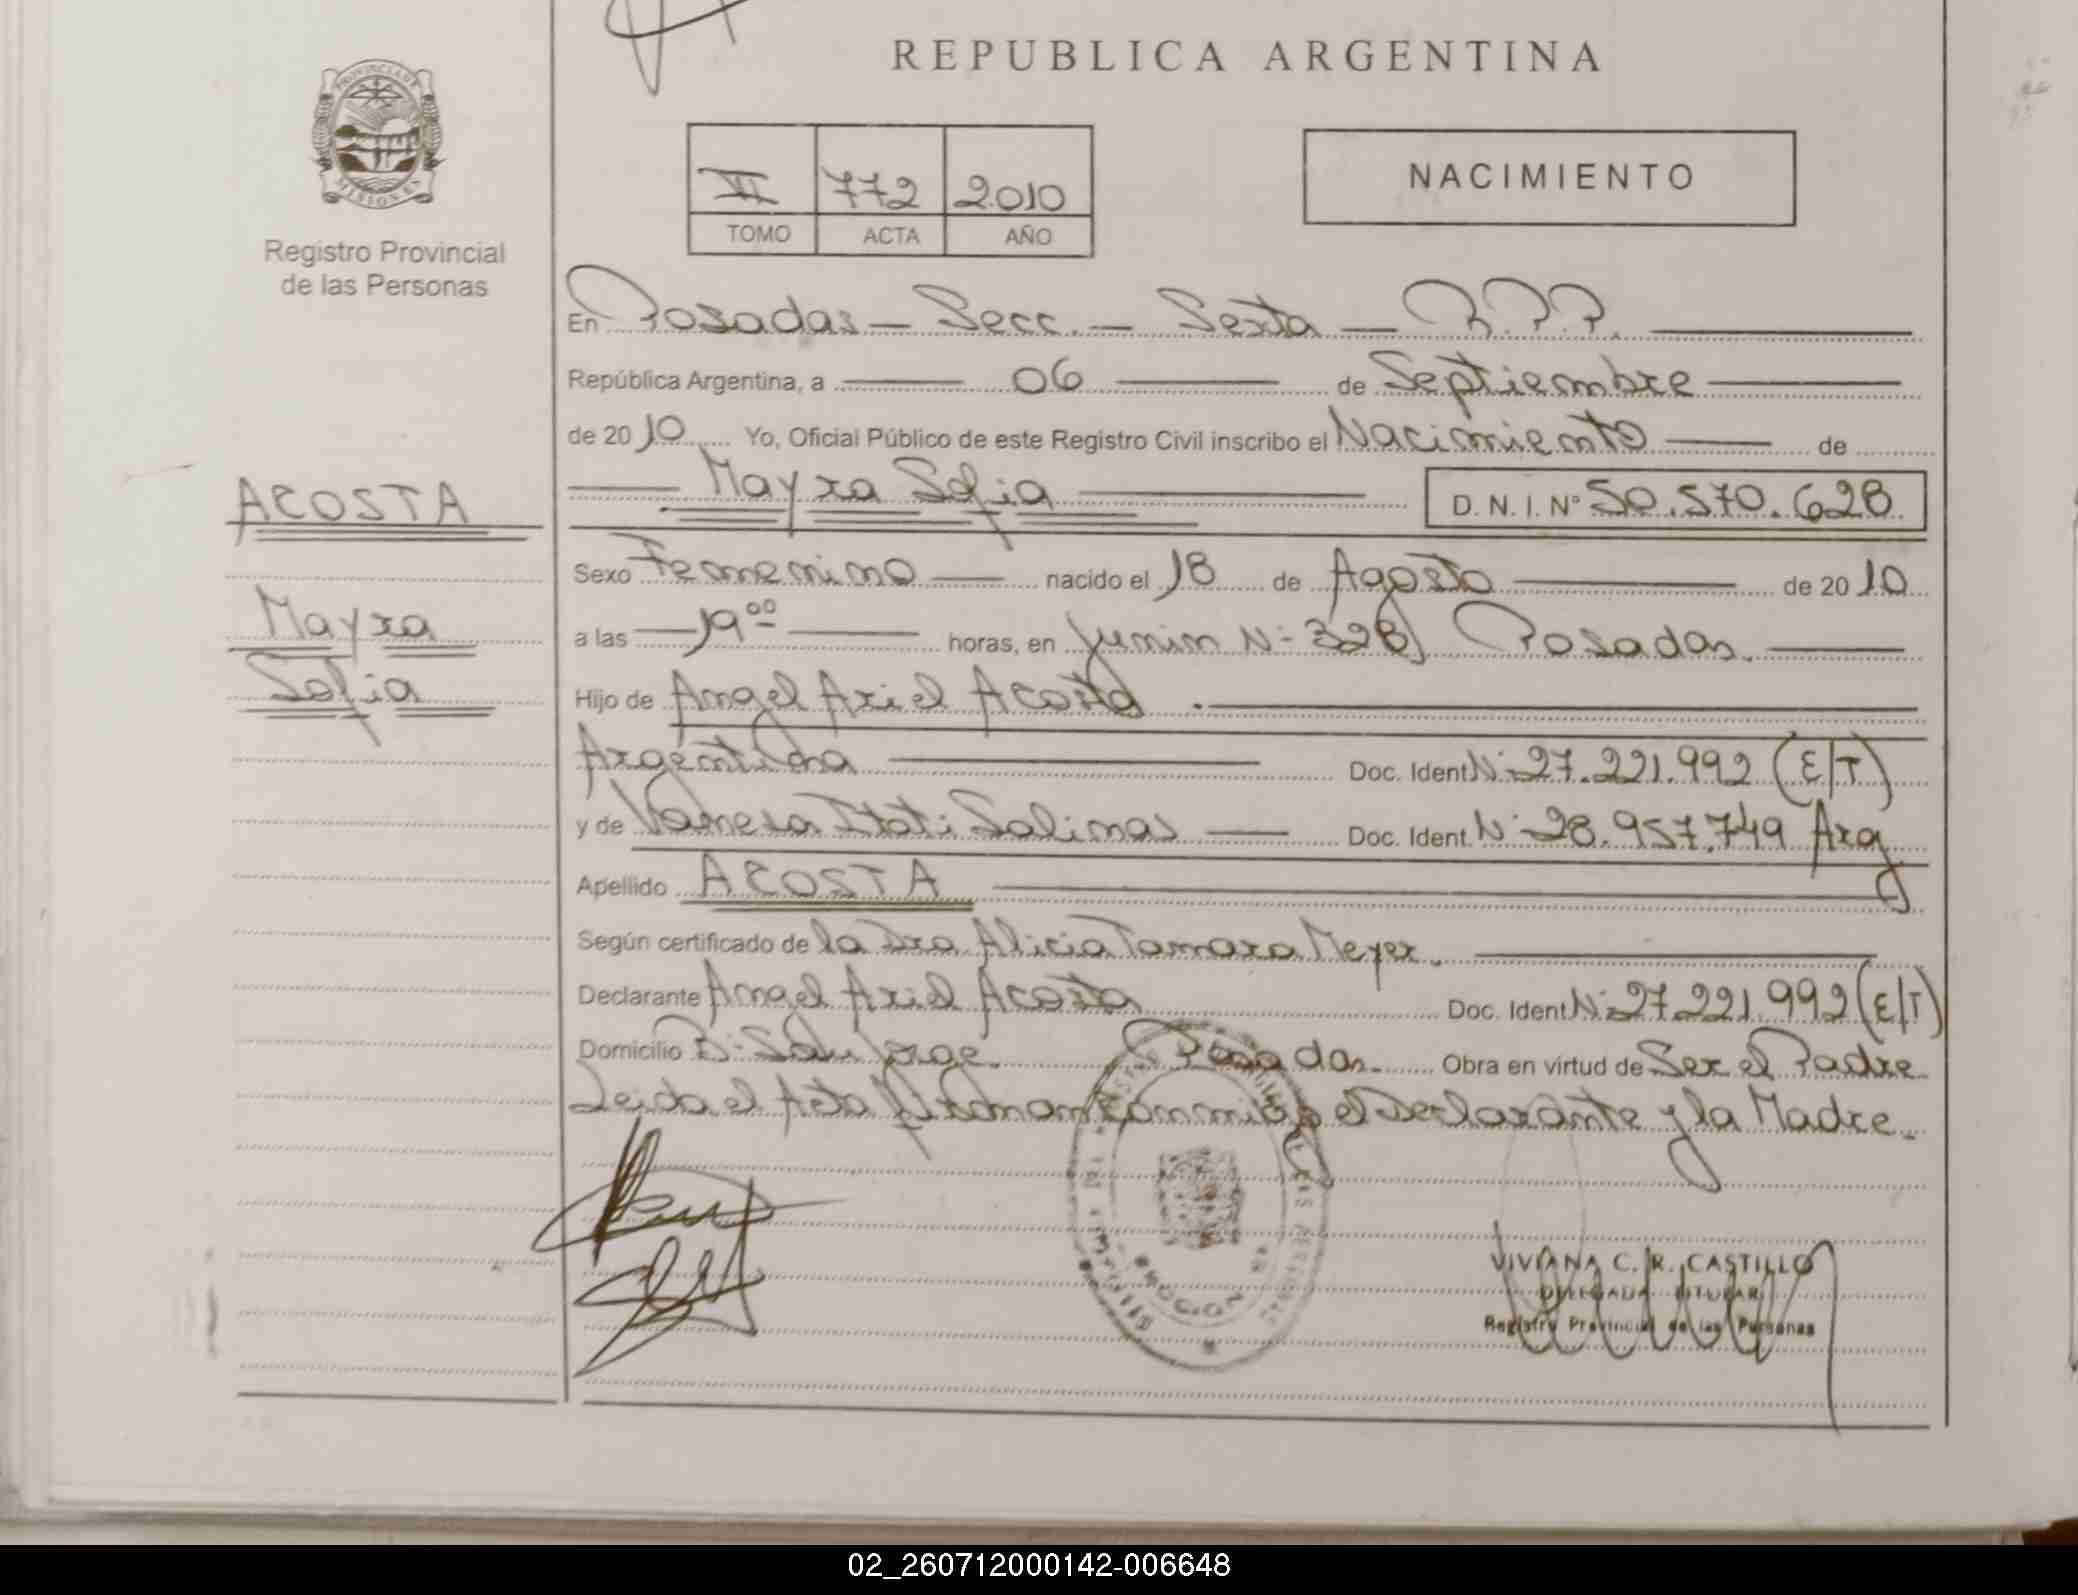 REPUBLICA ARGENTINA
PROVINCIA DE
MISIONES
Registro Provincial
de las Personas
II 772 2010
TOMO ACTA AÑO
NACIMIENTO
En Posadas - Secc. - Sexta - R.P.P.
República Argentina, a 06 de Septiembre
de 2010 Yo, Oficial Público de este Registro Civil inscribo el Nacimiento de
Mayra Sofia D.N.I. N° 50.570.628
ACOSTA
Mayra
Sofia
Sexo Femenino nacido el 18 de Agosto de 2010
a las 19 00 horas, en Junin N: 328 Posadas.
Hijo de Angel Ariel Acosta.
Argentina Doc. Ident N: 27.221.992 (E/T)
y de Vanesa Itati Salinas Doc. Ident. N: 28.957.749 Arg
Apellido ACOSTA
Según certificado de la Dra. Alicia Tamara Meyer.
Declarante Angel Ariel Acosta Doc. Ident N: 27.221.992 (E/T)
Domicilio B: San Jorge. Posadas. Obra en virtud de Ser el Padre
Leida el Acta firman conmigo el Declarante y la Madre.
VIVIANA C. R. CASTILLO
DELEGADA TITULAR
Registro Provincial de las Personas
02_260712000142-006648